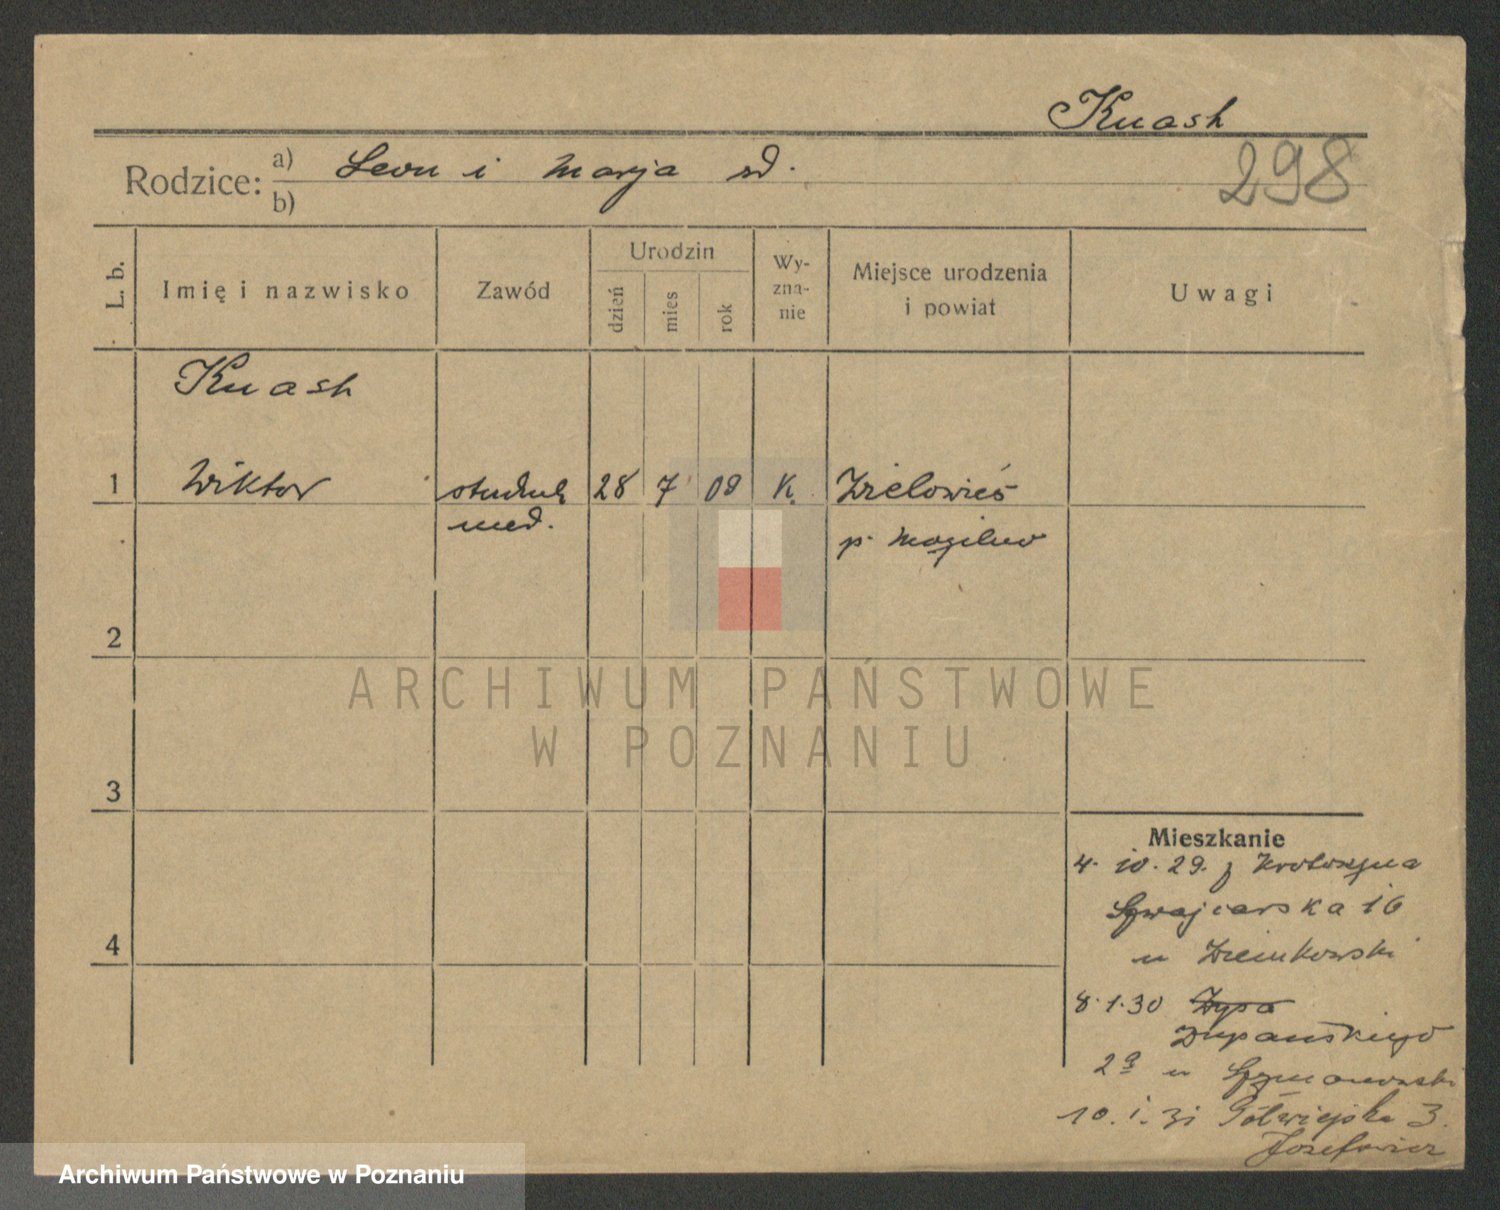 Knash
Rodzice: a) Leon i Marja rd.
b)
298
L. b.
Imię i nazwisko
Zawód
Urodzin
dzień
mies
rok
Wy-
zna-
nie
Miejsce urodzenia
i powiat
Uwagi
Knash
1 Wiktor student 28 7 08 K. Wielowieś
med. p. Mogilno
2
ARCHIWUM PAŃSTWOWE
W POZNANIU
3
Mieszkanie
4. 10. 29. z Krotoszyna
Szwajcarska 16
u Ziemkowski
4
8.1.30
Żupańskiego
2a u Szymanowski
10. 1. 31 Półwiejska 3.
Józefowicz
Archiwum Państwowe w Poznaniu